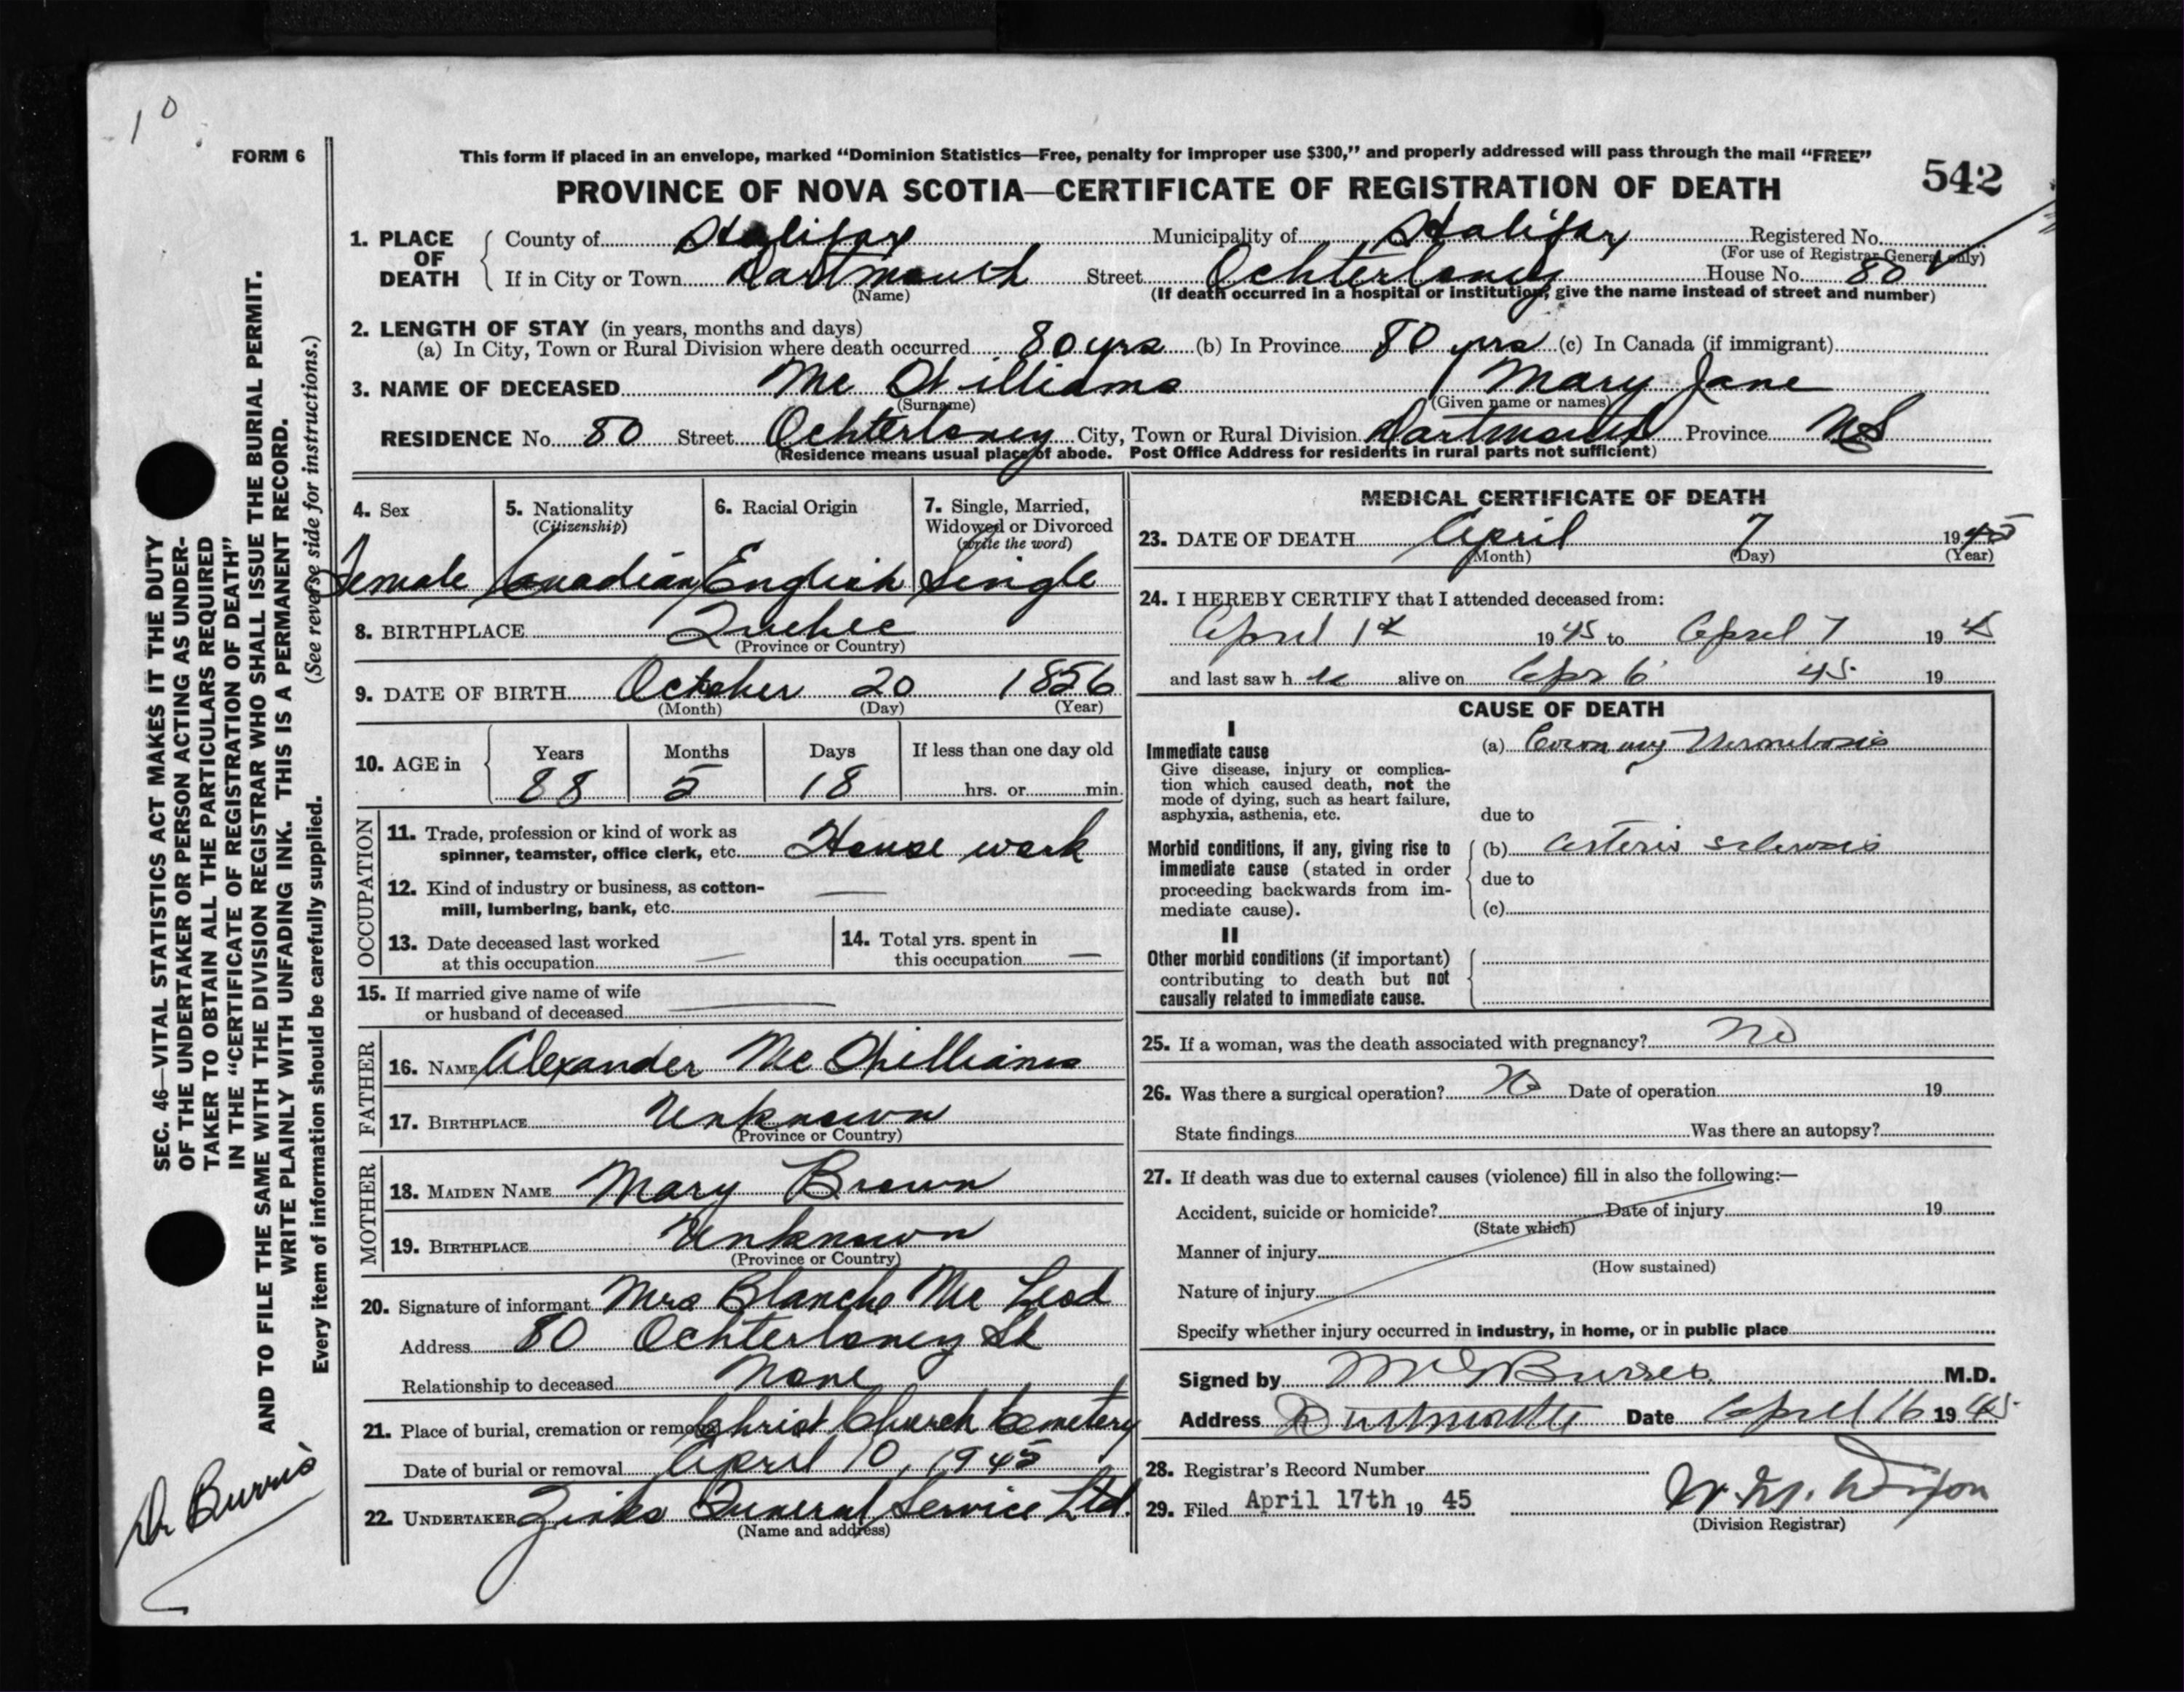 10
FORM 6
This form if placed in an envelope, marked “Dominion Statistics—Free, penalty for improper use $300,” and properly addressed will pass through the mail “FREE”
542
PROVINCE OF NOVA SCOTIA—CERTIFICATE OF REGISTRATION OF DEATH
1. PLACE OF DEATH County of Halifax Municipality of Halifax Registered No.
(For use of Registrar General only)
If in City or Town Dartmouth Street Ochterloney House No. 80
(Name) (If death occurred in a hospital or institution, give the name instead of street and number)
2. LENGTH OF STAY (in years, months and days)
(a) In City, Town or Rural Division where death occurred 80 yrs (b) In Province 80 yrs (c) In Canada (if immigrant)
3. NAME OF DECEASED Mc Williams / Mary Jane
(Surname) (Given name or names)
RESIDENCE No. 80 Street Ochterloney City, Town or Rural Division Dartmouth Province NS
(Residence means usual place of abode. Post Office Address for residents in rural parts not sufficient)
4. Sex 5. Nationality 6. Racial Origin 7. Single, Married,
(Citizenship) Widowed or Divorced
(write the word)
Female Canadian English Single
8. BIRTHPLACE Quebec
(Province or Country)
9. DATE OF BIRTH October 20 1856
(Month) (Day) (Year)
10. AGE in Years Months Days If less than one day old
88 5 18 hrs. or min.
OCCUPATION
11. Trade, profession or kind of work as
spinner, teamster, office clerk, etc. House work
12. Kind of industry or business, as cotton-
mill, lumbering, bank, etc. —
13. Date deceased last worked
at this occupation —
14. Total yrs. spent in
this occupation —
15. If married give name of wife
or husband of deceased —
FATHER
16. NAME Alexander Mc Williams
17. BIRTHPLACE Unknown
(Province or Country)
MOTHER
18. MAIDEN NAME Mary Brown
19. BIRTHPLACE Unknown
(Province or Country)
20. Signature of informant Mrs Blanche Mc Leod
Address 80 Ochterloney St
Relationship to deceased None
21. Place of burial, cremation or removal Christ Church Cemetery
Date of burial or removal April 10, 1945
22. UNDERTAKER Zinks Funeral Service Ltd.
(Name and address)
MEDICAL CERTIFICATE OF DEATH
23. DATE OF DEATH April 7 1945
(Month) (Day) (Year)
24. I HEREBY CERTIFY that I attended deceased from:
April 1st 1945 to April 7 1945
and last saw h er alive on Apr 6 45 19
CAUSE OF DEATH
I
Immediate cause
Give disease, injury or complica-
tion which caused death, not the
mode of dying, such as heart failure,
asphyxia, asthenia, etc.
(a) Coronary Thrombosis
due to
Morbid conditions, if any, giving rise to
immediate cause (stated in order
proceeding backwards from im-
mediate cause).
(b) Arterio sclerosis
due to
(c)
II
Other morbid conditions (if important)
contributing to death but not
causally related to immediate cause.
25. If a woman, was the death associated with pregnancy? No
26. Was there a surgical operation? No Date of operation 19
State findings Was there an autopsy?
27. If death was due to external causes (violence) fill in also the following:—
Accident, suicide or homicide? Date of injury 19
(State which)
Manner of injury
(How sustained)
Nature of injury
Specify whether injury occurred in industry, in home, or in public place
Signed by Burris M.D.
Address Dartmouth Date April 16 1945
28. Registrar's Record Number
29. Filed April 17th 19 45
(Division Registrar)
SEC. 46—VITAL STATISTICS ACT MAKES IT THE DUTY
OF THE UNDERTAKER OR PERSON ACTING AS UNDER-
TAKER TO OBTAIN ALL THE PARTICULARS REQUIRED
IN THE “CERTIFICATE OF REGISTRATION OF DEATH”
AND TO FILE THE SAME WITH THE DIVISION REGISTRAR WHO SHALL ISSUE THE BURIAL PERMIT.
WRITE PLAINLY WITH UNFADING INK. THIS IS A PERMANENT RECORD.
Every item of information should be carefully supplied. (See reverse side for instructions.)
Dr Burris